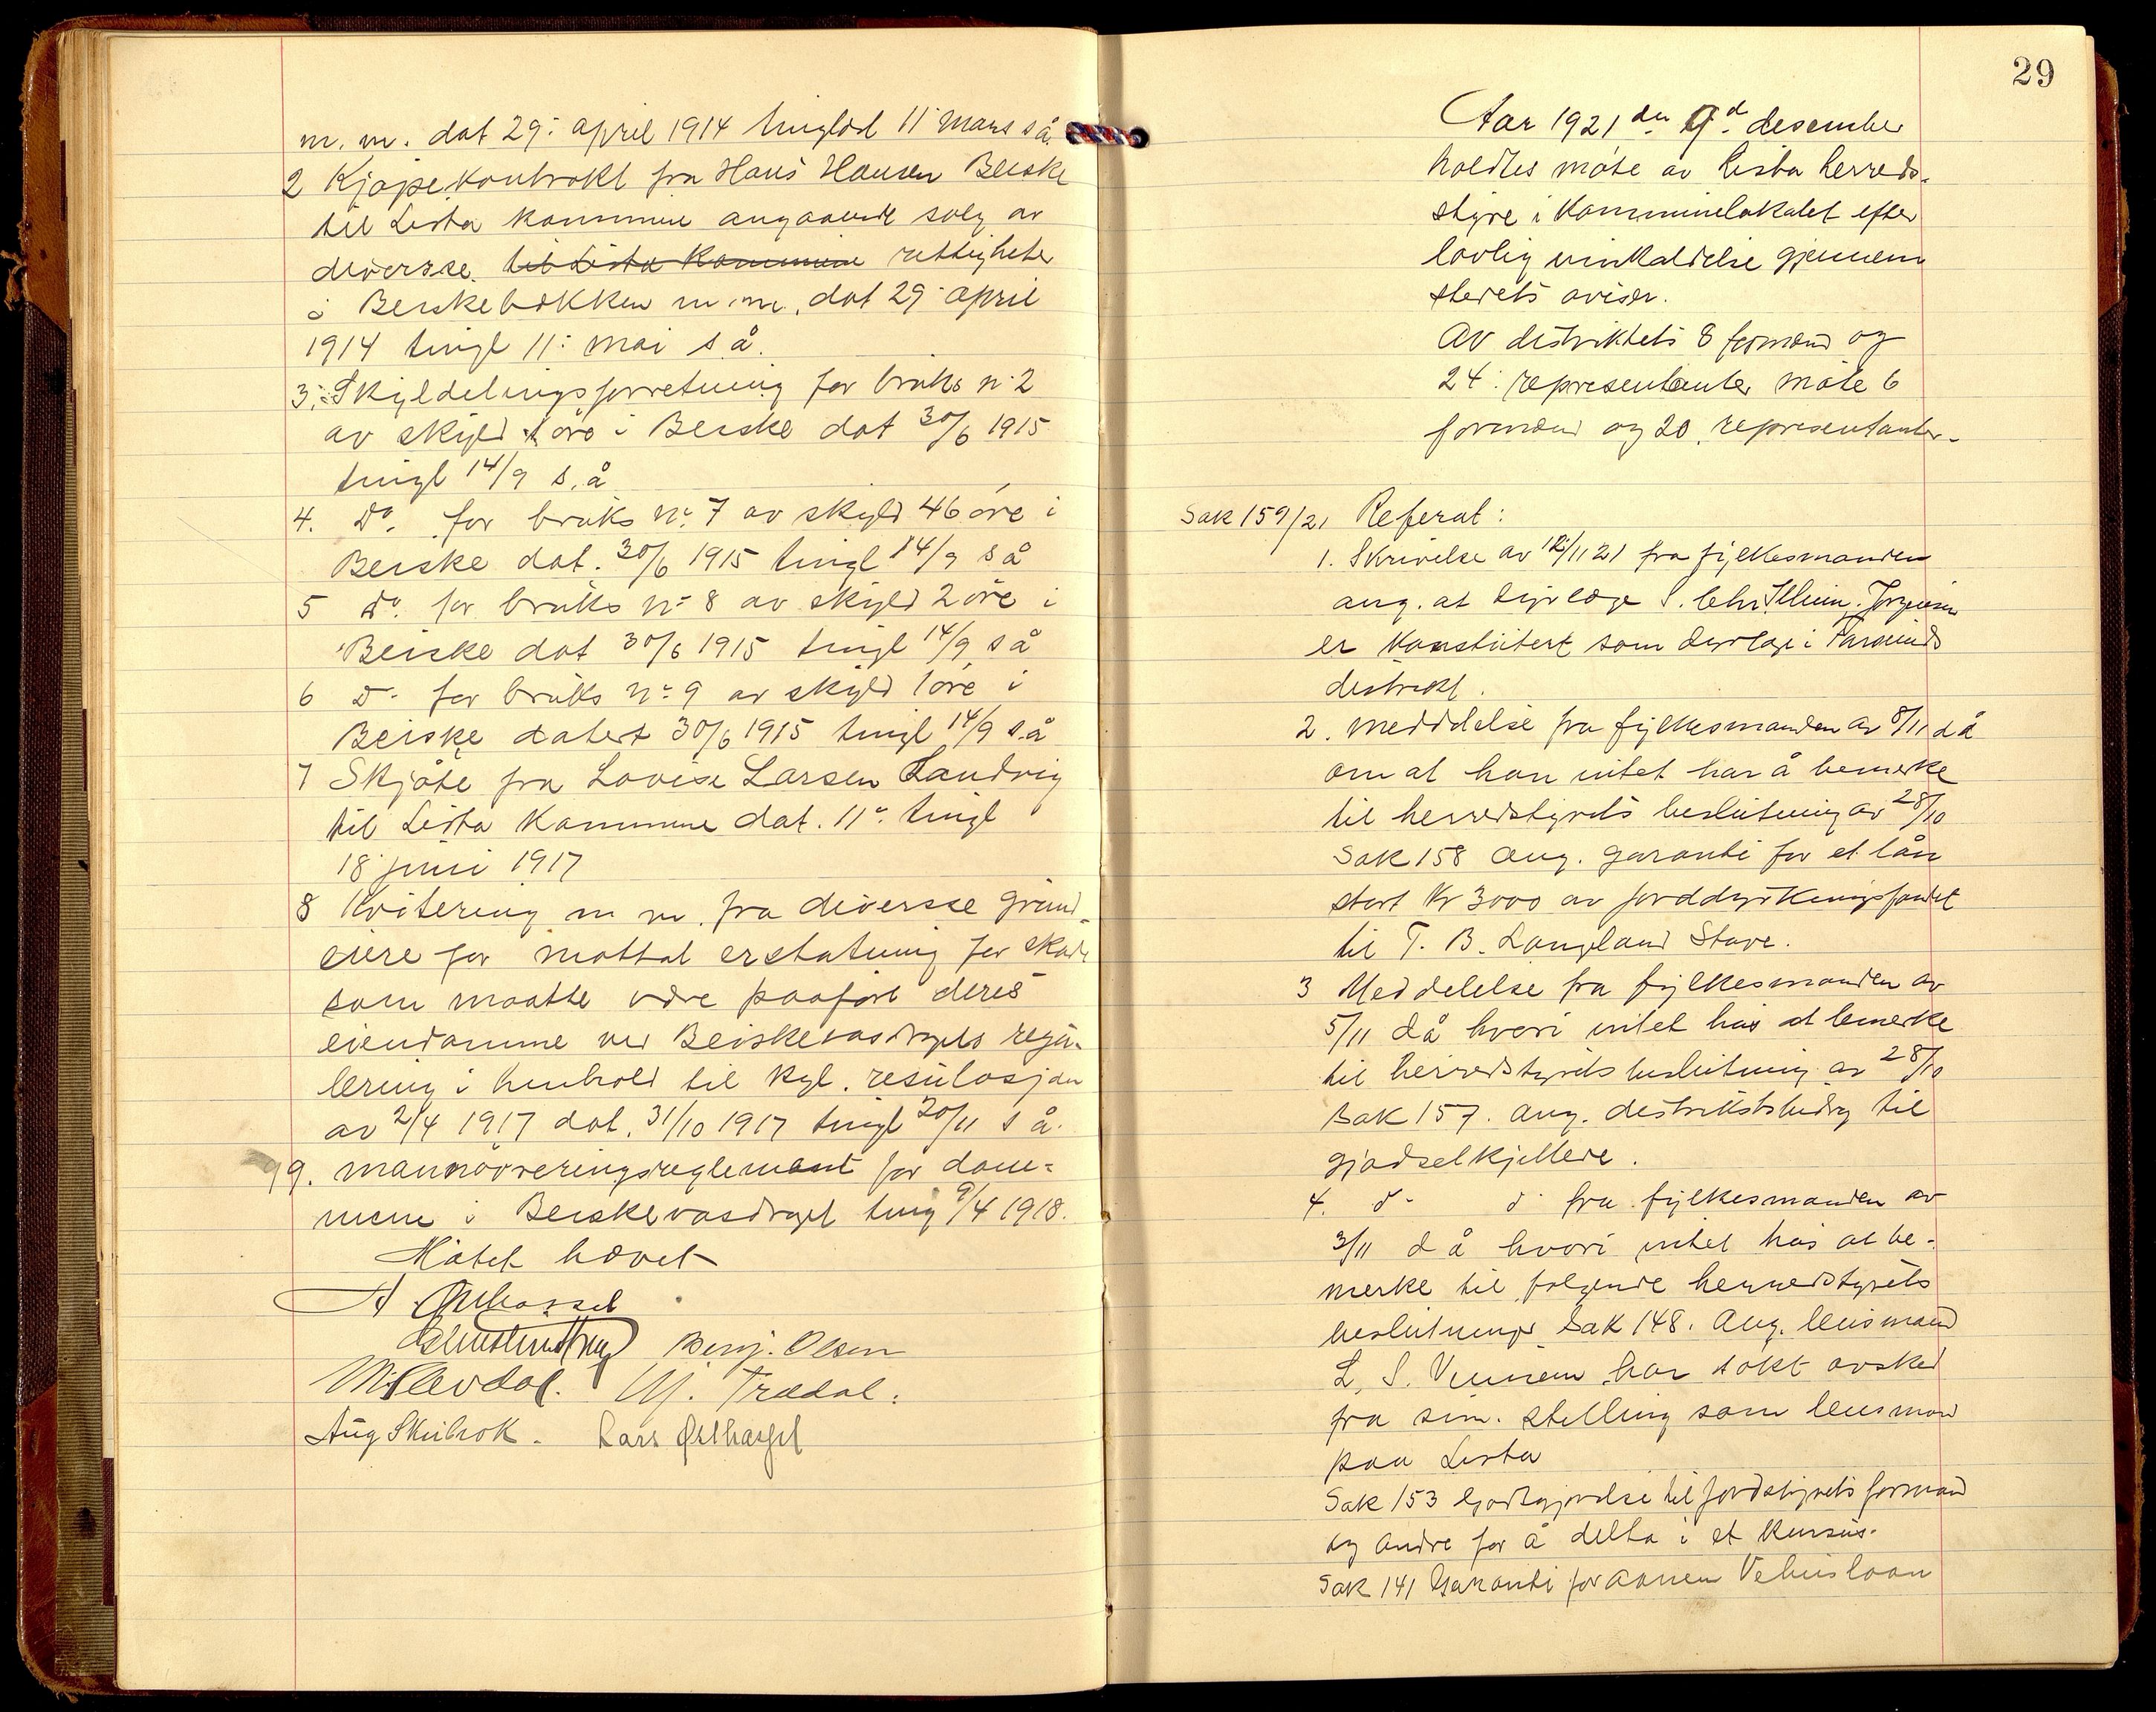 m. m. dat 29: april 1914 tinglæst 11 mars s å.
2 Kjøpekontrakt fra Hans Hansen Beiske
til Lista kommune angaaende salg av
diverse til Lista Kommune rettigheter
i Beiskebækken m. m. dat 29 april
1914 tingl 11: mai s å.
3: Skyldelingsforretning for bruks nr 2
av skyld 1 øre i Beiske dat 30/6 1915
tingl 14/9 s. å
4. Do. for bruks nr. 7 av skyld 46 øre i
Beiske dat. 30/6 1915 tingl 14/9 s å
5 Do for bruks nr 8 av skyld 2 øre i
Beiske dat 30/6 1915 tingl 14/9 s å
6 Do for bruks nr 9 av skyld 1 øre i
Beiske datert 30/6 1915 tingl 14/9 s. å
7 Skjøte fra Lovise Larsen Landvig
til Lista Kommune dat. 11: tingl
18 juni 1917
8 Kvitering m m. fra diverse grund-
eiere for mottat erstatning for skade
som maatte være paaført deres
eiendomme ved Beiskevasdragets regu-
lering i henhold til kgl. resulosjon
av 2/4 1917 dat. 31/10 1917 tingl 20/11 s å.
9. manøvreringsreglement for dam-
mene i Beiskevasdraget ting 9/4 1918.
Møtet hævet
A
Benj. Olsen
M. Slevdal. Mj. Trædal.
Aug Skeibrok. Lars Østhassel
29
Aar 1921 den 9d desember
holdtes møte av Lista herreds-
styre i Kommunelokalet efter
lovlig innkaldelse gjennem
stedets aviser.
Av distriktets 8 formænd og
24 representanter møtte 6
formænd og 20 representanter.
Sak 159/21 Referat:
1. Skrivelse av 12/11 21 fra fylkesmanden
ang. at dyrlæge S. Chr. Jørgensen
er konstitutert som dyrlæge i Farsunds
distrikt.
2. meddelse fra fylkesmanden av 8/11 d å
om at han intet har å bemerke
til herredstyrets beslutning av 28/10
Sak 158 ang. garanti for et lån
stort Kr 3000 av jorddyrkningsfondet
til T. B. Langland Stave.
3 Meddelelse fra fylkesmanden av
5/11 då hvori intet hås at bemerke
til herredstyrets beslutning av 28/10
Sak 157. ang. distriktsbidrag til
gjødselkjellere.
4. do do fra fylkesmanden av
3/11 d å hvori intet hås at be-
merke til følgende herredstyrets
beslutninger Sak 148. Ang. lensmand
L. S. har søkt avsked
fra sin stilling som lensmand
paa Lista
Sak 153 Godtgjørelse til jordstyrets formand
og andre for å delta i et kursus.
Sak 141 Garanti for Aanen Vehusloan